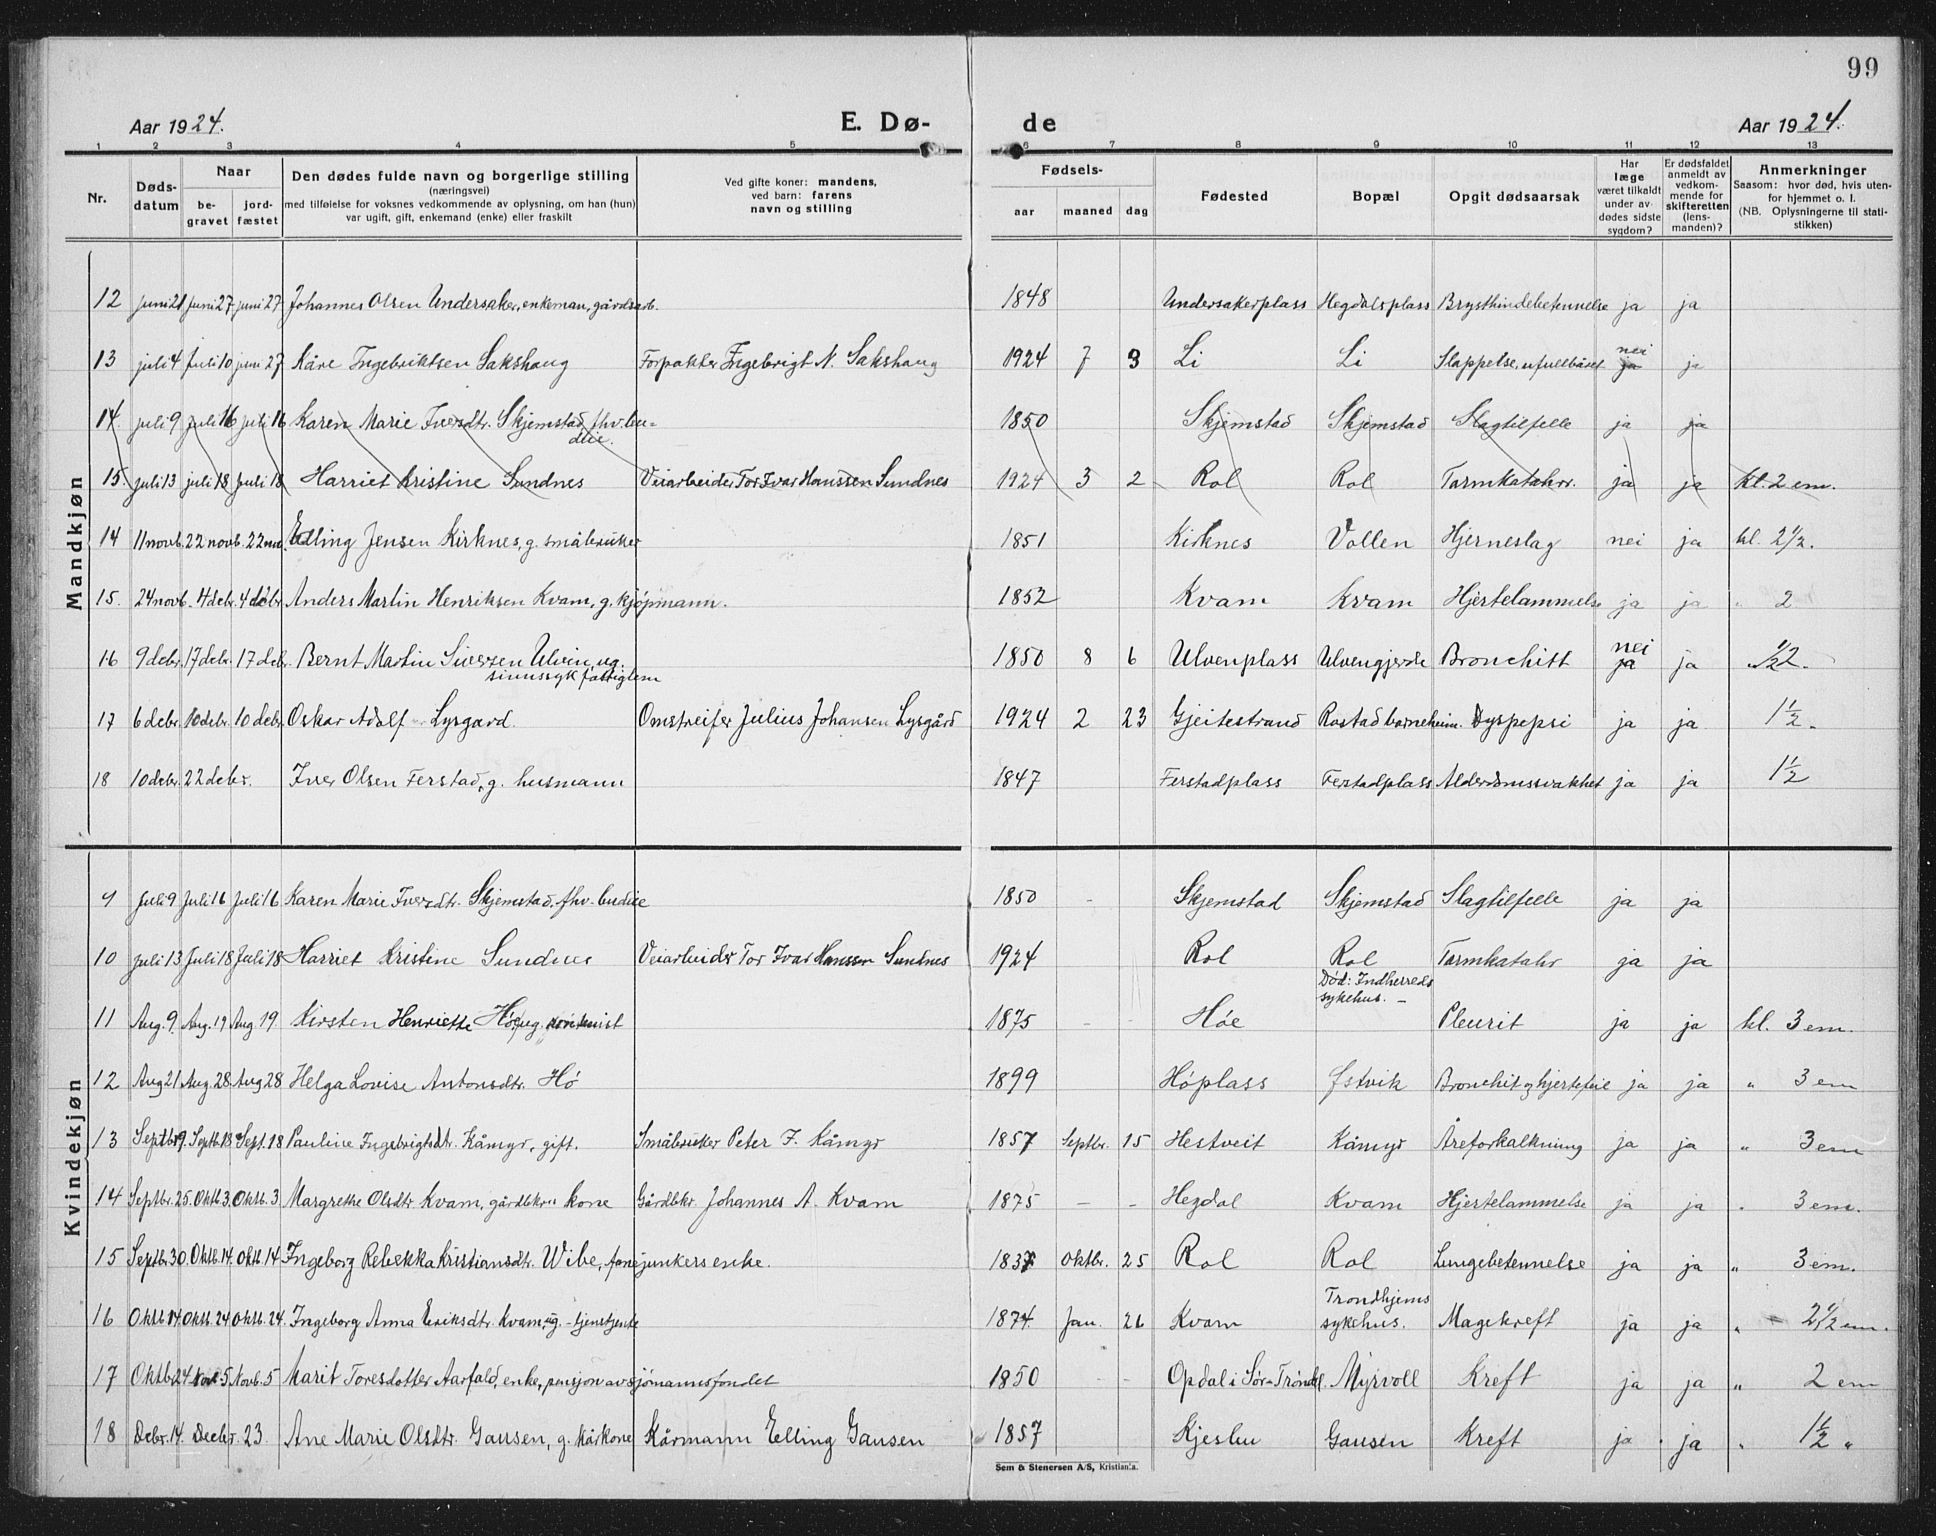 99
Aar 1924. E. Dø- de Aar 1924.
1 2 3 4 5 6 7 8 9 10 11 12 13
Nr. Døds-datum Naar be-gravet jord-fæstet Den dødes fulde navn og borgerlige stilling (næringsvei) med tilføielse for voksnes vedkommende av oplysning, om han (hun) var ugift, gift, enkemand (enke) eller fraskilt Ved gifte koner: mandens, ved barn: farens navn og stilling Fødsels- aar maaned dag Fødested Bopæl Opgit dødsaarsak Har læge været tilkaldt under av-dødes sidste sygdom? Er dødsfaldet anmeldt av vedkom-mende for skifteretten (lens-manden)? Anmerkninger Saasom: hvor død, hvis uten-for hjemmet o. l. (NB. Oplysningerne til stati-stikken)
Mandkjøn
12 juni 21 juni 27 juni 27 Johannes Olsen Undersaker, enkeman, gårdsarb. 1848 Undersakerplass Hegdalsplass Brysthindebetennelse ja ja
13 juli 4 juli 10 juni 27 Kåre Ingebriktsen Sakshaug Forpakter Ingebrigt N. Sakshaug 1924 7 3 Li Li Slappelse, ufullbåret nei ja ja
14. juli 9 juli 16 juli 16 Karen Marie Iversdtr. Skjemstad, fhv. bu-deie. 1850 Skjemstad Skjemstad Slagtilfelle ja ja
15. juli 13 juli 18 juli 18 Harriet Kristine Sundnes Veiarbeider Tor Ivar Hanssen Sundnes 1924 3 2 Rol Rol Tarmkatahrr. ja ja kl. 2 em.
14 11 novb. 22 novb. 22 nov. Elling Jensen Kirknes, g. småbruker 1851 Kirknes Vollen Hjerneslag nei ja kl. 2 1/2.
15. 24 novb. 4 debr. 4 debr. Anders Martin Henriksen Kvam, g. kjöpmann. 1852 Kvam Kvam Hjertelammelse ja ja " 2
16 9 debr. 17 debr. 17 deb. Bernt Martin Sivertsen Ulvin, ug. sinnssyk fattiglem 1850 8 6 Ulvenplass Ulvengjerde Bronchitt nei ja ja 1/2.
17 6 debr. 10 debr. 10 debr. Oskar Adolf Lysgard Omstreifer Julius Johansen Lysgård 1924 2 23 Gjeitestrand Rostad barneheim. Dyspepsi ja ja 1 1/2.
18 10 debr. 22 debr. Iver Olsen Ferstad, g. husmann 1847 Ferstadplass Ferstadplass Alderdomssvakhet ja ja 1 1/2
Kvindekjøn
9 Juli 9 Juli 16 Juli 16 Karen Marie Iversdtr. Skjemstad, fhv. budeie 1850 - Skjemstad Skjemstad Slagtilfelle ja ja
10 juli 13 Juli 18 Juli 18 Harriet Kristine Sundnes Veiarbeider Tor Ivar Hanssen Sundnes 1924 Rol Rol Tarmkatahr ja ja
11 Aug. 9. Aug. 19 Aug 19. Kirsten Henriette Höe, ug. 1875 - - Höe Död: Indherreds sykehus. - Pleurit ja ja kl. 3 em.
12 Aug 21 Aug. 28. Aug 28 Helga Lovise Antonsdtr. Hö 1899 Höplass Östvik Bronchit og hjertefeil ja ja " 3 em
13 Septbr 9. Septb 18 Sept. 18 Pauline Ingebrigtsdtr. Kåmyr, gift. Småbruker Peter F. Kåmyr 1857 Septbr. 15 Hestveit Kåmyr Åreforkalkning ja ja " 3 em
14 Septbr. 25. Oktb. 3. Oktb. 3 Margrethe Olsdtr. Kvam, gårdbkr. kone Gårdbkr. Johannes A. Kvam 1875 - - Hegdal Kvam Hjertelammelse ja ja " 3 em.
15 Septbr 30. Oktb. 14. Oktb. 14 Ingeborg Rebekka Kristiansdtr. Wibe, fanejunkers enke. 1837 Oktbr. 25 Rol Rol Lungebetennelse ja ja " 3 em.
16 Oktb 14. Oktb. 24 Oktb. 24. Ingeborg Anna Eriksdtr. Kvam, ug. - tjenstjente 1874. Jan. 26 Kvam Trondhjems sykehus. Magekreft ja ja " 2 1/2 em.
17 Oktbr 24 Nov. 5 Novb. 5 Marit Toresdotter Aarfald, enke, pensjon av sjömannsfondet 1850 - - Opdal i Sör-Tröndel. Myrvoll Kreft ja ja " 2 em
18 Debr. 14. Decbr. 23. Ane Marie Olsdtr. Gausen, g. kårkone Kårmann Elling Gausen 1857 Kjeslu Gausen Kreft ja ja " 1 1/2 "
Sem & Stenersen A/S, Kristiania.